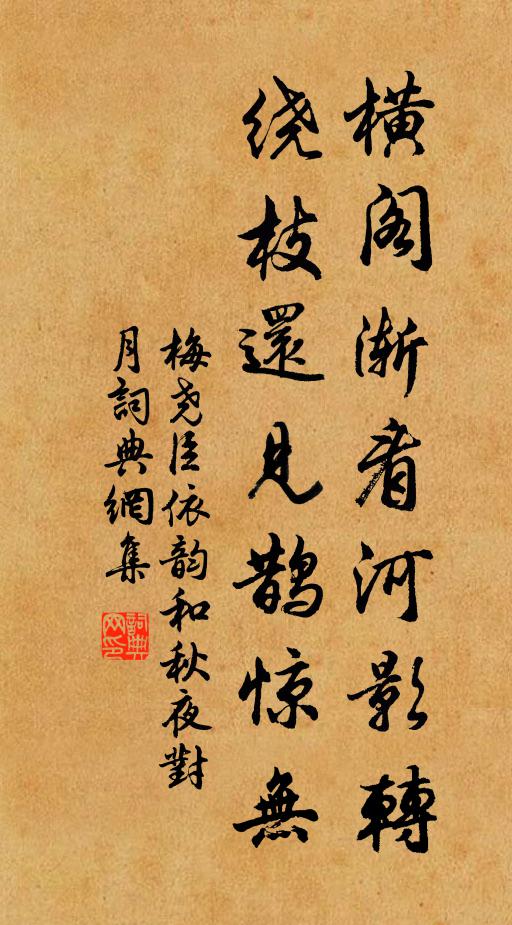 橫阁渐看河影轉
绕枝還见鹊惊無
梅尧臣依韵和秋夜對
月詞典網集
詞典网印